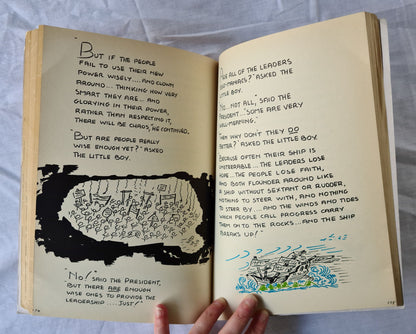 But if the people
fail to use their new
power wisely.... and clown
around... thinking how very
smart they are... and
glorying in their power,
rather than respecting it,
there will be chaos," he continued.
"But are people really
wise enough yet?" asked
the little boy.
"No!" said the President,
but there are enough
wise ones to provide the
leadership .... just!"
"Are all of the leaders
ego-maniacs?" asked the
little boy.
"No... not all," said the
President... "Some are very
well-meaning."
"Then why don't they do
better?" asked the little boy.
Because often their ship is
unsteerable... the leaders lose
... the people lose faith,
and both flounder around like
a ship without sextant or rudder,
nothing to steer with, and nothing
to steer by... and the winds and tides
which people call progress carry
them on to the rocks... and the ship
breaks up!"